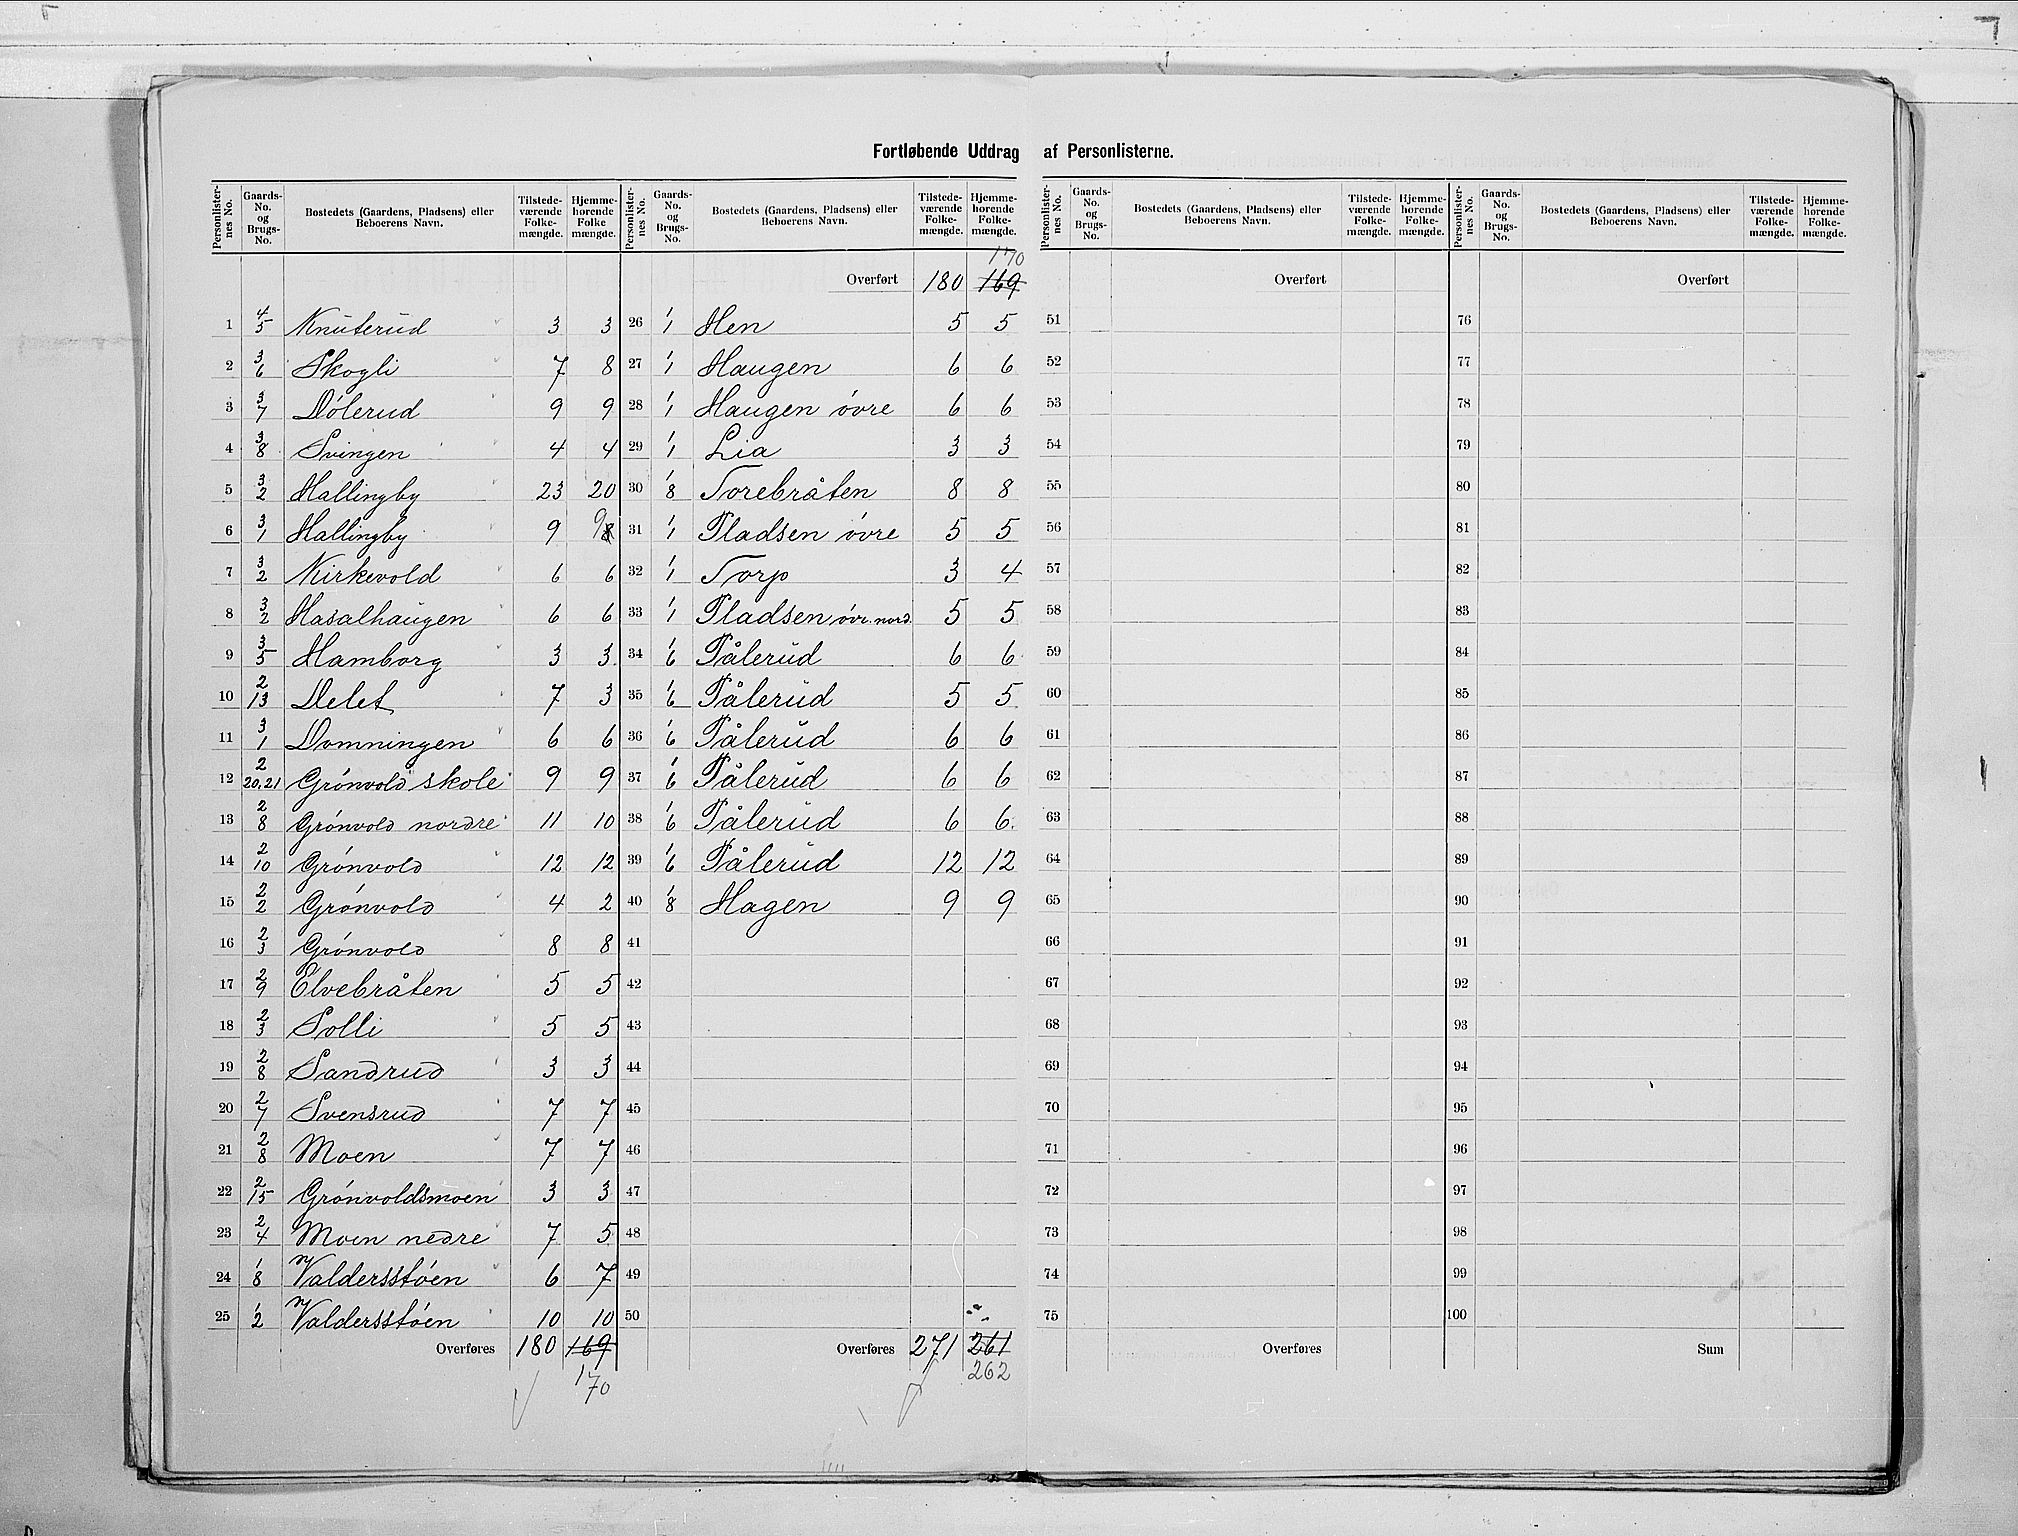 Fortløbende Uddrag af Personlisterne.
Personlisternes No. | Gaards-No. og Brugs-No. | Bostedets (Gaardens, Pladsens) eller Beboerens Navn. | Tilstedeværende Folkemængde. | Hjemmehørende Folkemængde.
1 4/5 Knuterud 3 3
2 3/6 Skogli 7 8
3 3/7 Dölerud 9 9
4 3/8 Svingen 4 4
5 3/2 Hallingby 23 20
6 3/1 Hallingby 9 9 8
7 3/2 Kirkevold 6 6
8 3/2 Hasalhaugen 6 6
9 3/5 Hamborg 3 3
10 2/13 Delet 7 3
11 3/1 Domningen 6 6
12 2/20,21 Grönvold skole 9 9
13 2/8 Grönvold nordre 11 10
14 2/10 Grönvold 12 12
15 2/2 Grönvold 4 2
16 2/3 Grönvold 8 8
17 2/9 Elvebråten 5 5
18 2/3 Solli 5 5
19 2/8 Sandrud 3 3
20 2/7 Svensrud 7 7
21 2/8 Moen 7 7
22 2/15 Grönvoldsmoen 3 3
23 2/4 Moen nedre 7 5
24 1/8 Valdersstöen 6 7
25 1/2 Valdersstöen 10 10
Overføres 180 169
170
Personlisternes No. | Gaards-No. og Brugs-No. | Bostedets (Gaardens, Pladsens) eller Beboerens Navn. | Tilstedeværende Folkemængde. | Hjemmehørende Folkemængde.
170
Overført 180 169
26 1/1 Hen 5 5
27 1/1 Haugen 6 6
28 1/1 Haugen övre 6 6
29 1/1 Lia 3 3
30 1/8 Torebråten 8 8
31 1/1 Pladsen övre 5 5
32 1/1 Torp 3 4
33 1/1 Pladsen övr. nord. 5 5
34 1/6 Pålerud 6 6
35 1/6 Pålerud 5 5
36 1/6 Pålerud 6 6
37 1/6 Pålerud 6 6
38 1/6 Pålerud 6 6
39 1/6 Pålerud 12 12
40 1/8 Hagen 9 9
41
42
43
44
45
46
47
48
49
50
Overføres 271 261
262
Personlisternes No. | Gaards-No. og Brugs-No. | Bostedets (Gaardens, Pladsens) eller Beboerens Navn. | Tilstedeværende Folkemængde. | Hjemmehørende Folkemængde.
Overført
51
52
53
54
55
56
57
58
59
60
61
62
63
64
65
66
67
68
69
70
71
72
73
74
75
Overføres
Personlisternes No. | Gaards-No. og Brugs-No. | Bostedets (Gaardens, Pladsens) eller Beboerens Navn. | Tilstedeværende Folkemængde. | Hjemmehørende Folkemængde.
Overført
76
77
78
79
80
81
82
83
84
85
86
87
88
89
90
91
92
93
94
95
96
97
98
99
100
Sum